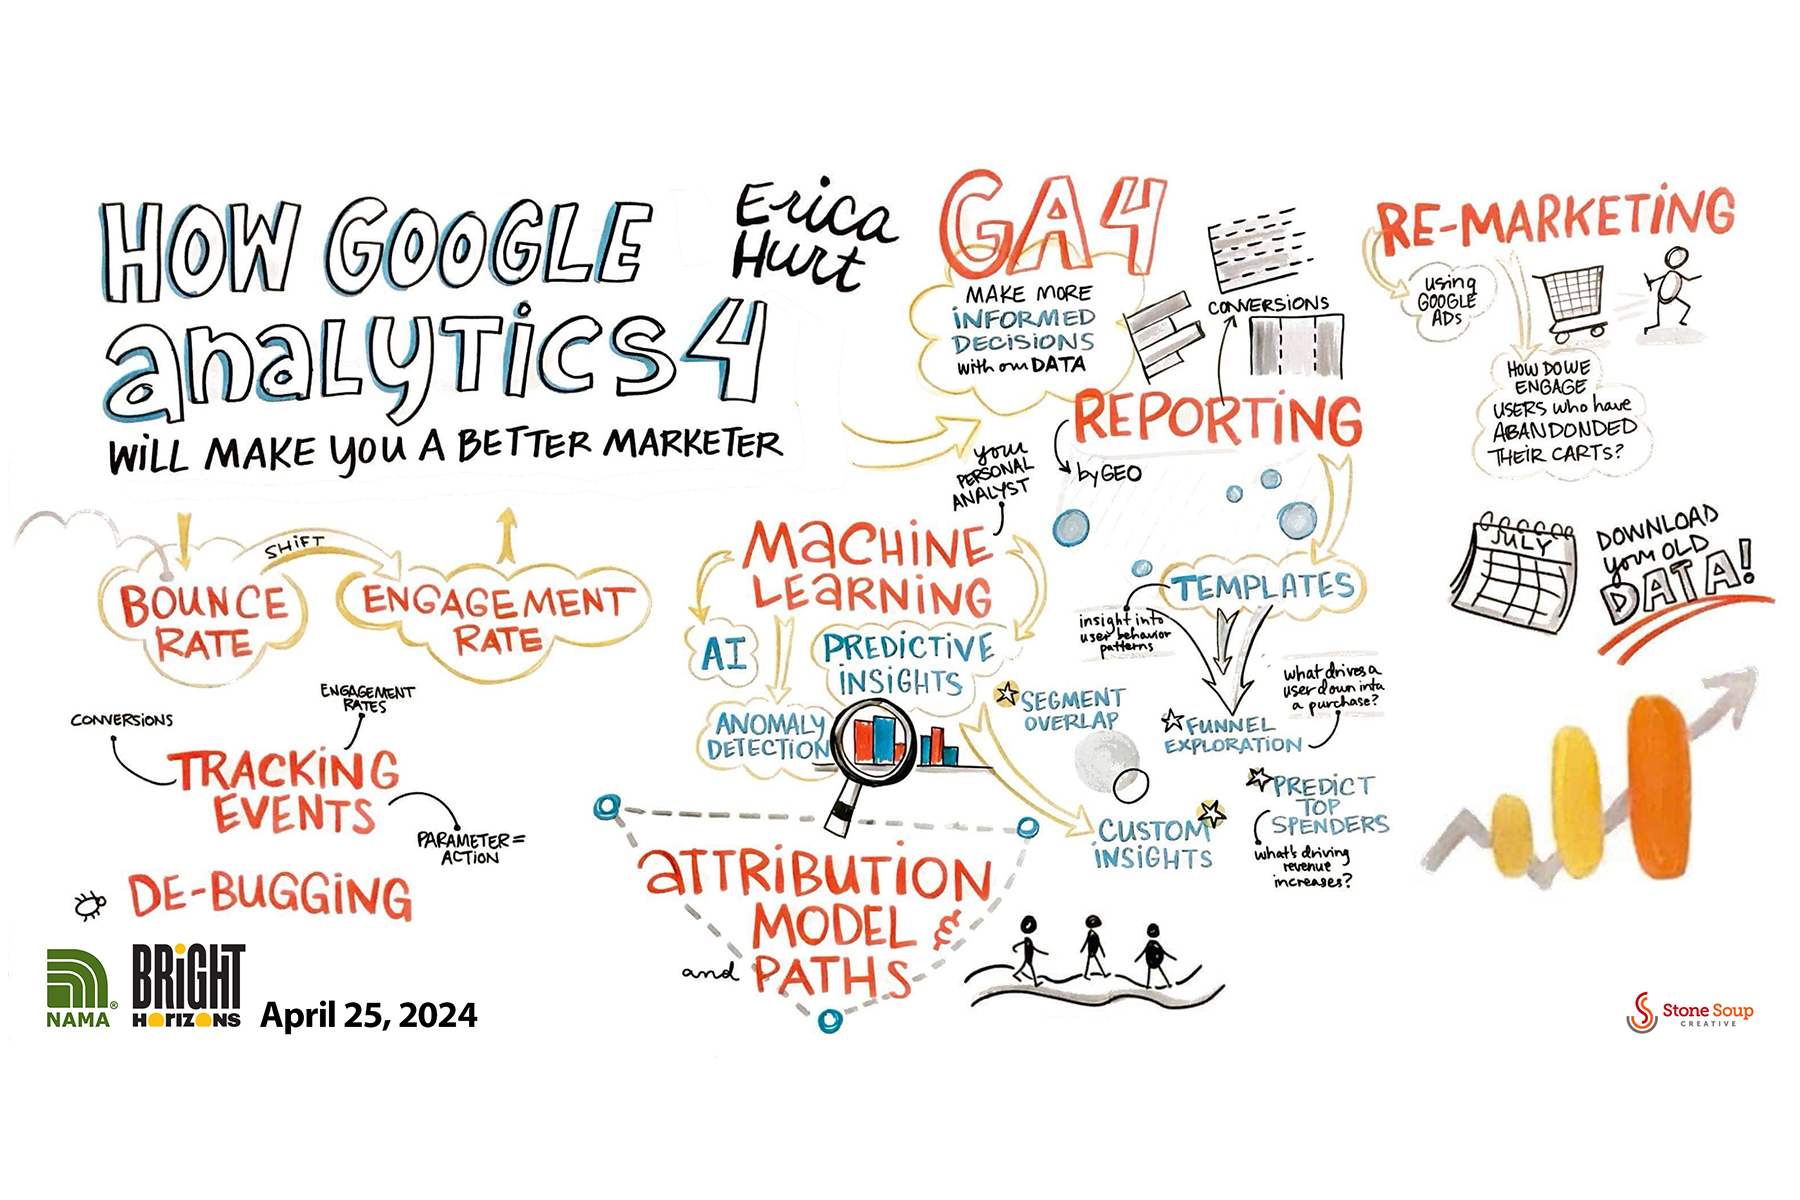 HOW GOOGLE
ANALYTICS 4
WILL MAKE YOU A BETTER MARKETER
Erica
Hurt
BOUNCE
RATE
SHIFT
ENGAGEMENT
RATE
CONVERSIONS
ENGAGEMENT
RATES
TRACKING
EVENTS
PARAMETER =
ACTION
DE-BUGGING
GA4
MAKE MORE
INFORMED
DECISIONS
with our DATA
your
PERSONAL
ANALYST
MACHINE
LEARNING
AI
PREDICTIVE
INSIGHTS
ANOMALY
DETECTION
ATTRIBUTION
MODEL &
and PATHS
CONVERSIONS
REPORTING
by GEO
TEMPLATES
insight into
user behavior
patterns
SEGMENT
OVERLAP
FUNNEL
EXPLORATION
what drives a
user down into
a purchase?
CUSTOM
INSIGHTS
PREDICT
TOP
SPENDERS
what's driving
revenue
increases?
RE-MARKETING
using
GOOGLE
ADs
HOW DO WE
ENGAGE
USERS who have
ABANDONDED
THEIR CARTS?
JULY
DOWNLOAD
your OLD
DATA!
NAMA®
BRiGHT
HORIZONS
April 25, 2024
Stone Soup
CREATIVE